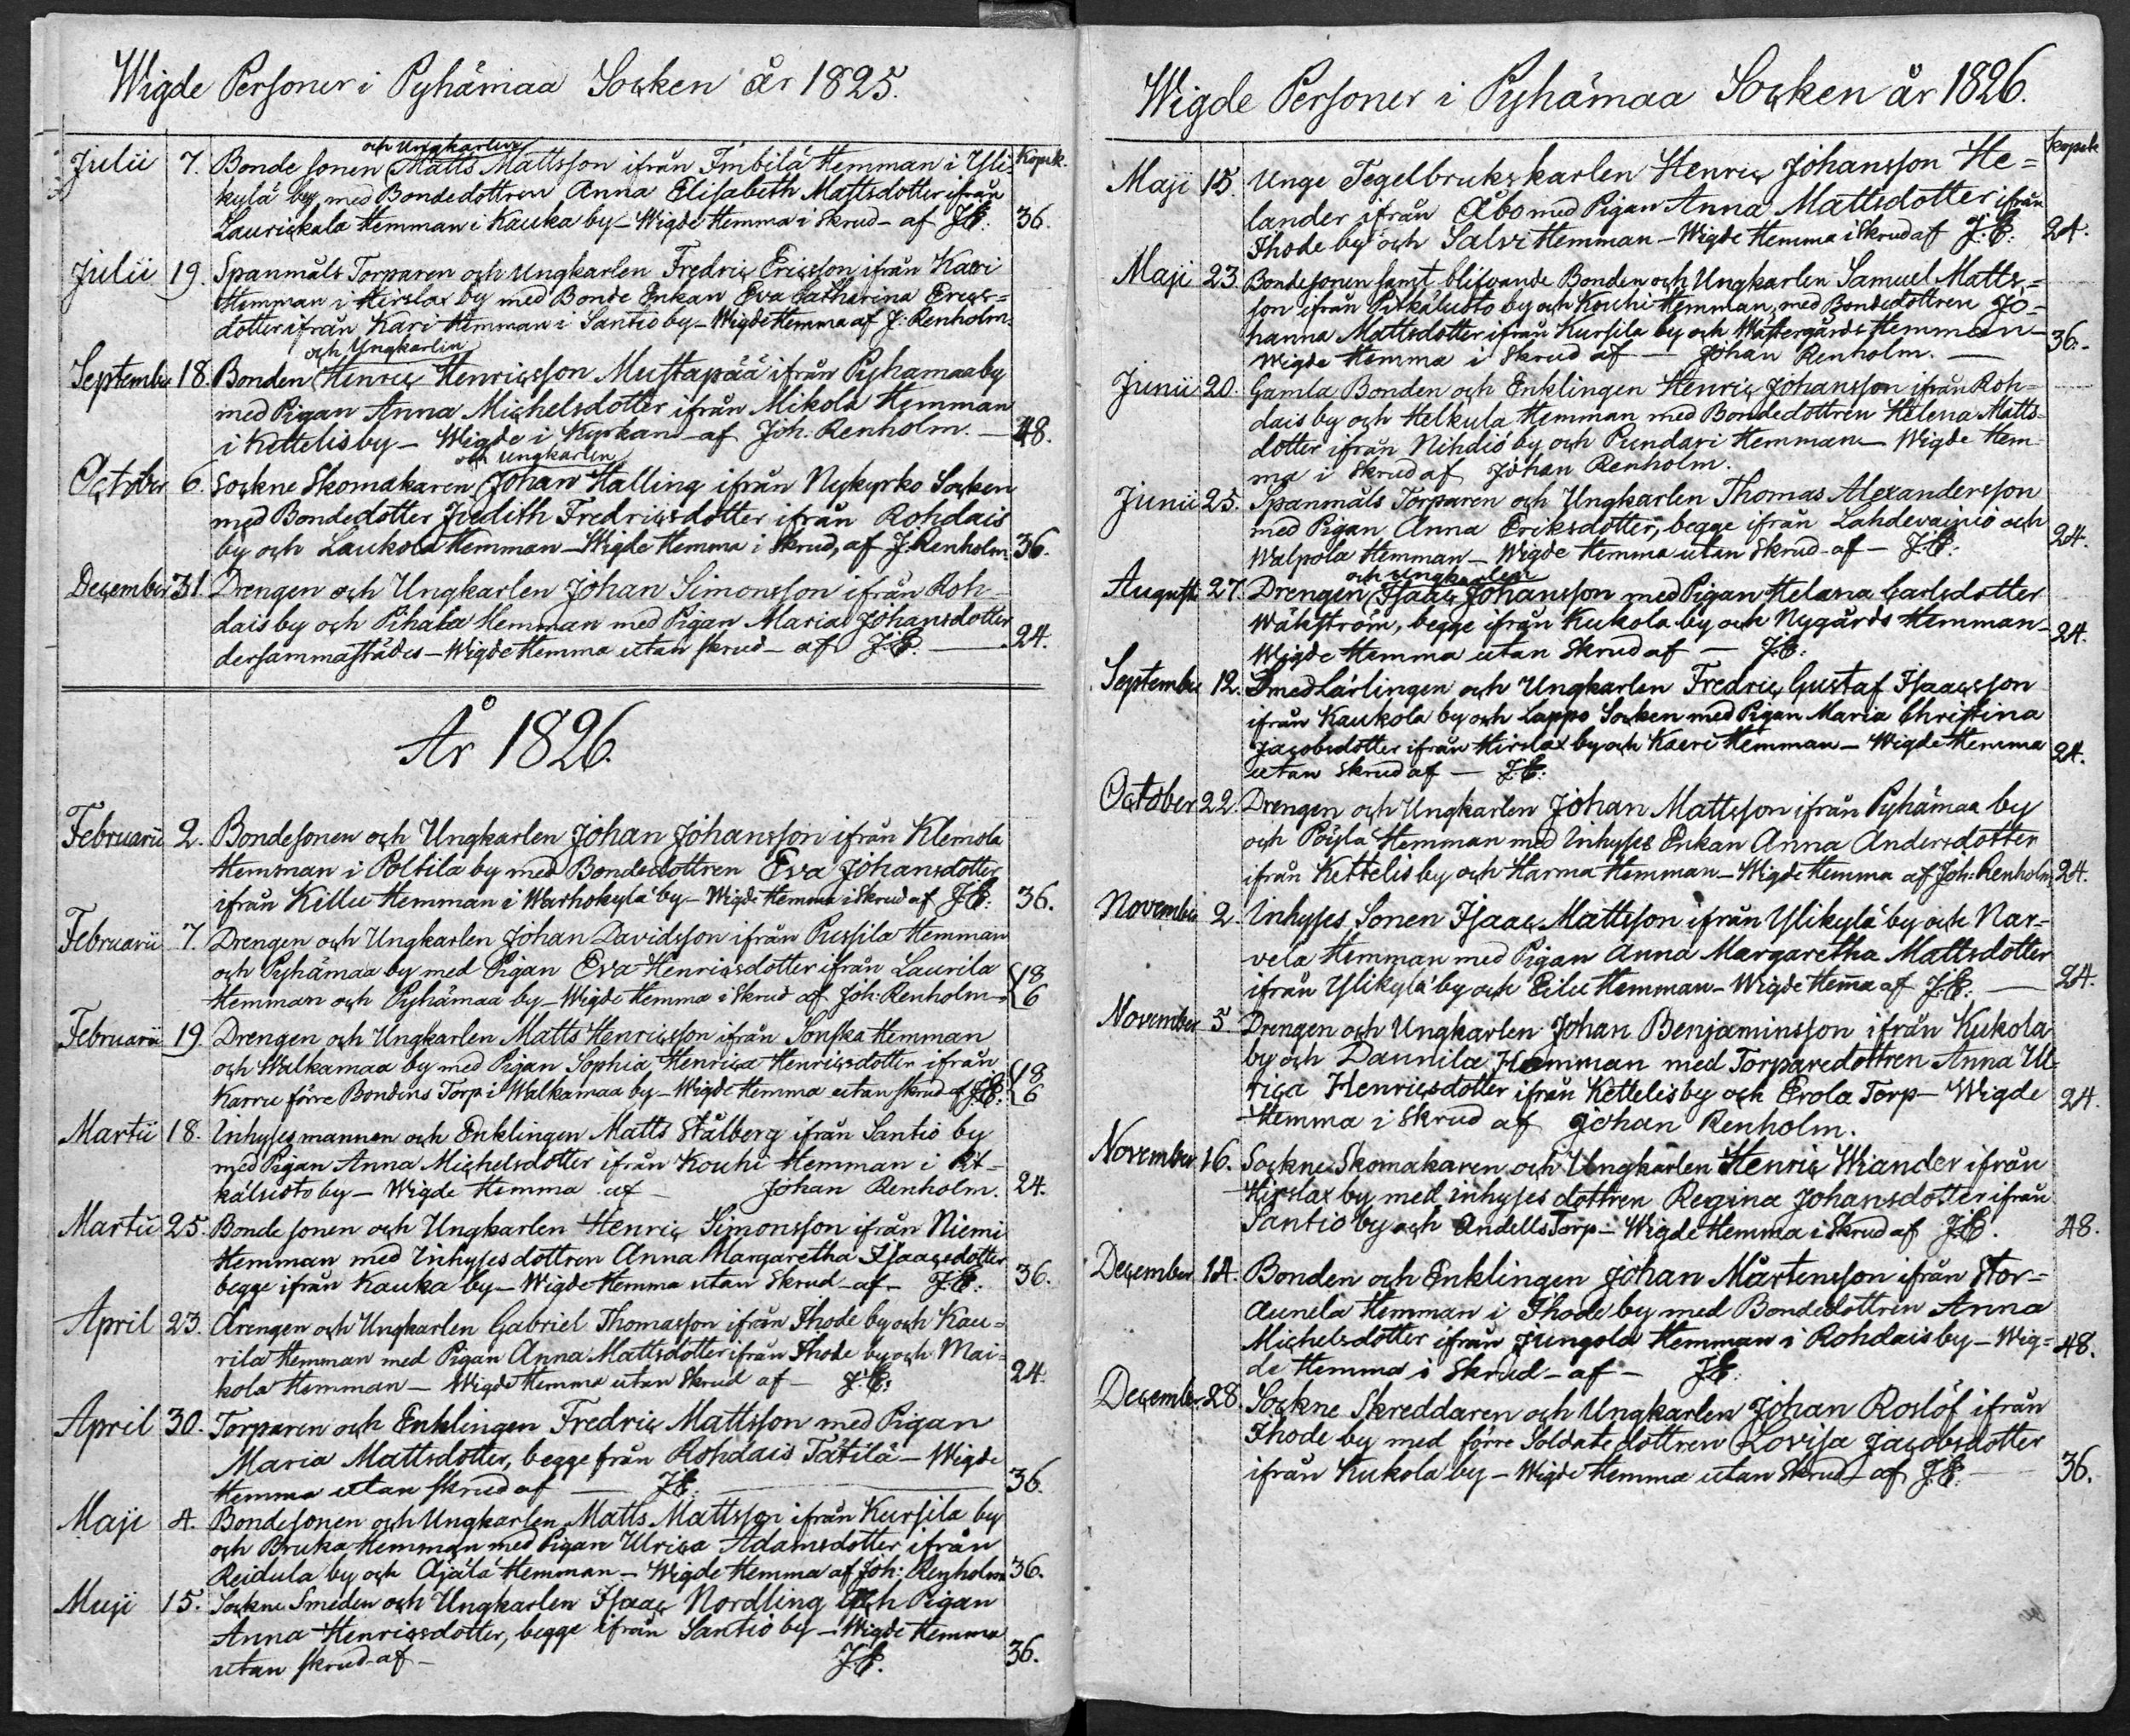 Wigde Personer i Pyhämaa Socken år 1825.
Kopek.
och Ungkarlen
Julii 7. Bonde sonen Matts Mattsson ifrån Imbilä Hemman i Yli-
kylä by, med Bondedottren Anna Elisabeth Mattsdotter ifrån
Laurickala Hemman i Kauka by – Wigde Hemma i Skrud – af J.E. 36.
Julii 19. Spanmåls Torparen och Ungkarlen Fredric Ericsson ifrån Kaeri
Hemman i Hirslax by med Bonde Enkan Eva Catharina Erics=
dotter ifrån Kari Hemman i Santio by – Wigde Hemma af J. Renholm.
och Ungkarlen
September 18. Bonden Henric Henricsson Mustapää ifrån Pyhamaa by
med Pigan Anna Michelsdotter ifrån Mikola Hemman
i Kettelis by – Wigde i Kyrkan – af Joh. Renholm. – 48.
och Ungkarlen
October 6. Sockne Skomakaren Johan Halling ifrån Nykyrko Socken
med Bondedotter Judith Fredricsdotter ifrån Rohdais
by och Laukola Hemman – Wigde Hemma i Skrud, af J. Renholm 36.
December 31. Drengen och Ungkarlen Johan Simonsson ifrån Roh-
dais by och Pihala Hemman med Pigan Maria Johansdotter
dersammastädes – Wigde Hemma utan skrud – af J.E. 24.
År 1826.
Februarii 2. Bondesonen och Ungkarlen Johan Johansson ifrån Klemola
Hemman i Poltila by med Bondedottren Eva Johansdotter
ifrån Killu Hemman i Warhokylä by – Wigde Hemma i Skrud af J.E. 36.
Februarii 7. Drengen och Ungkarlen Johan Davidsson ifrån Pussila Hemman
och Pyhämaa by med Pigan Eva Henricsdotter ifrån Laurila 18
Hemman och Pyhämaa by – Wigde Hemma i Skrud af Joh: Renholm – 6
Februarii 19. Drengen och Ungkarlen Matts Henricsson ifrån Sonska Hemman
och Walkamaa by med Pigan Sophia Henrica Henricsdotter ifrån 18
Karru förre Bondens Torp i Walkamaa by – Wigde Hemma utan skrud af J.E. 6
Martii 18. Inhyses mannen och Enklingen Matts Stålberg ifrån Santio by
med Pigan Anna Michelsdotter ifrån Kouhi Hemman i Pit-
kälusto by – Wigde Hemma af – Johan Renholm. 24.
Martii 25. Bonde sonen och Ungkarlen Henric Simonsson ifrån Niemi
Hemman med Inhyses dottren Anna Margaretha Isaacsdotter
begge ifrån Kauka by – Wigde Hemma utan Skrud – af – J.E. 36.
April 23. Drengen och Ungkarlen Gabriel Thomasson ifrån Ihode by och Kau=
rila Hemman med Pigan Anna Mattsdotter ifrån Ihode by och Mai=
kola Hemman – Wigde Hemma utan Skrud af – J.E. 24.
April 30. Torparen och Enklingen Fredric Mattsson med Pigan
Maria Mattsdotter, begge från Rohdais Tätilä – Wigde
Hemma utan skrud af – J.E. 36.
Maji 4. Bondesonen och Ungkarlen Matts Mattsson ifrån Kursila by
och Bruka Hemman med Pigan Ulrica Adamsdotter ifrån
Reidula by och Äjälä Hemman – Wigde Hemma af Joh: Renholm 36.
Maji 15. Sockne Smeden och Ungkarlen Isaac Nordling och Pigan
Anna Henricsdotter, begge ifrån Santio by – Wigde Hemma
utan skrud – af – J.E. 36.
Wigde Personer i Pyhämaa Socken år 1826.
kopek
Maji 15. Unge Tegelbrukskarlen Henric Johansson He=
lander ifrån Åbo med Pigan Anna Mattsdotter ifrån
Ihode by och Salvi Hemman – Wigde Hemma i Skrud af J.E. 24.
Maji 23. Bondesonen samt blifvande Bonden och Ungkarlen Samuel Matts=
son ifrån Pitkälusto by och Kouhi Hemman, med Bondedottren Jo=
hanna Mattsdotter ifrån Kursila by och Wästergårds Hemman – 36.
Wigde Hemma i Skrud af – Johan Renholm. –
Junii 20. Gamla Bonden och Enklingen Henric Johansson ifrån Roh=
dais by och Helkula Hemman med Bondedottren Helena Matts=
dotter ifrån Nihdiö by och Pundari Hemman – Wigde Hem-
ma i Skrud af Johan Renholm.
Junii 25. Spanmåls Torparen och Ungkarlen Thomas Alexandersson
med Pigan Anna Eriksdotter, begge ifrån Lahdevainio och
Walpola Hemman – Wigde Hemma utan Skrud – af – J.E. 24.
och Ungkarlen
Augusti 27. Drengen Isaac Johansson med Pigan Helena Carlsdotter
Wähström, begge ifrån Kukola by och Nygårds Hemman – 24.
Wigde Hemma utan Skrud af – J.E.
September 12. SmedLärlingen och Ungkarlen Fredric Gustaf Isaacsson
ifrån Kaukola by och Lappo Socken med Pigan Maria Christina
Jacobsdotter ifrån Hirslax by och Kaeri Hemman – Wigde Hemma 24.
utan Skrud af – J.E.
October 22. Drengen och Ungkarlen Johan Mattsson ifrån Pyhämaa by
och Pöyla Hemman med Inhyses Enkan Anna Andersdotter
ifrån Kettelis by och Harma Hemman – Wigde Hemma af Joh: Renholm 24.
November 2. Inhyses Sonen Isaac Mattsson ifrån Ylikylä by och Nar=
vela Hemman med Pigan Anna Margaretha Mattsdotter
ifrån Ylikylä by och Eilu Hemman – Wigde Hemma af J.E. – 24.
November 5 Drengen och Ungkarlen Johan Benjaminsson ifrån Kukola
by och Daunila Hemman med Torparedottren Anna Ul-
rica Henricsdotter ifrån Kettelis by och Erola Torp – Wigde 24.
Hemma i Skrud af Johan Renholm.
November 16. Sockne Skomakaren och Ungkarlen Henric Wiander ifrån
Hirslax by med Inhyses dottren Regina Johansdotter ifrån
Santio by och Andells Torp – Wigde Hemma i Skrud af J.E. 48.
December 14. Bonden och Enklingen Johan Mårtensson ifrån Stor=
Aunela Hemman i Ihode by med Bondedottren Anna
Michelsdotter ifrån Jungola Hemman i Rohdais by – Wig= 48.
de Hemma i Skrud – af – J.E.
December 28. Sockne Skreddaren och Ungkarlen Johan Roslöf ifrån
Ihode by med förre Soldate dottren Lovisa Jacobsdotter
ifrån Kukola by – Wigde Hemma utan Skrud – af J.E. – 36.